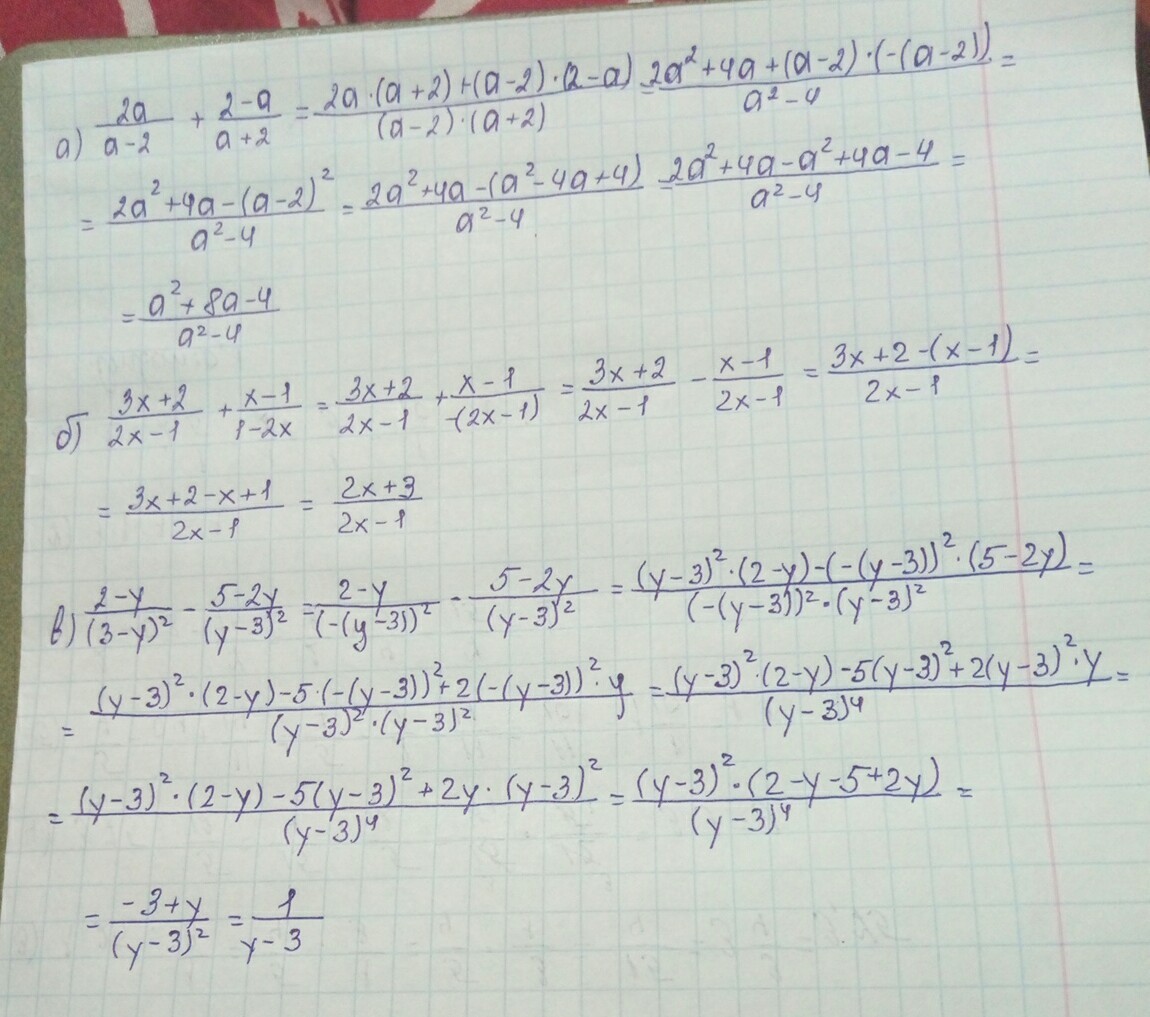 а) 2a/(a-2) + (2-a)/(a+2) = (2a·(a+2)+(a-2)·(2-a))/((a-2)·(a+2)) = (2a²+4a+(a-2)·(-(a-2)))/(a²-4) =
= (2a²+4a-(a-2)²)/(a²-4) = (2a²+4a-(a²-4a+4))/(a²-4) = (2a²+4a-a²+4a-4)/(a²-4) =
= (a²+8a-4)/(a²-4)
б) (3x+2)/(2x-1) + (x-1)/(1-2x) = (3x+2)/(2x-1) + (x-1)/(-(2x-1)) = (3x+2)/(2x-1) - (x-1)/(2x-1) = (3x+2-(x-1))/(2x-1) =
= (3x+2-x+1)/(2x-1) = (2x+3)/(2x-1)
в) (2-y)/(3-y)² - (5-2y)/(y-3)² = (2-y)/(-(y-3))² - (5-2y)/(y-3)² = ((y-3)²·(2-y)-(-(y-3))²·(5-2y))/((-(y-3))²·(y-3)²) =
= ((y-3)²·(2-y)-5·(-(y-3))²+2(-(y-3))²·y)/((y-3)²·(y-3)²) = ((y-3)²·(2-y)-5(y-3)²+2(y-3)²·y)/(y-3)⁴ =
= ((y-3)²·(2-y)-5(y-3)²+2y·(y-3)²)/(y-3)⁴ = ((y-3)²·(2-y-5+2y))/(y-3)⁴ =
= (-3+y)/(y-3)² = 1/(y-3)